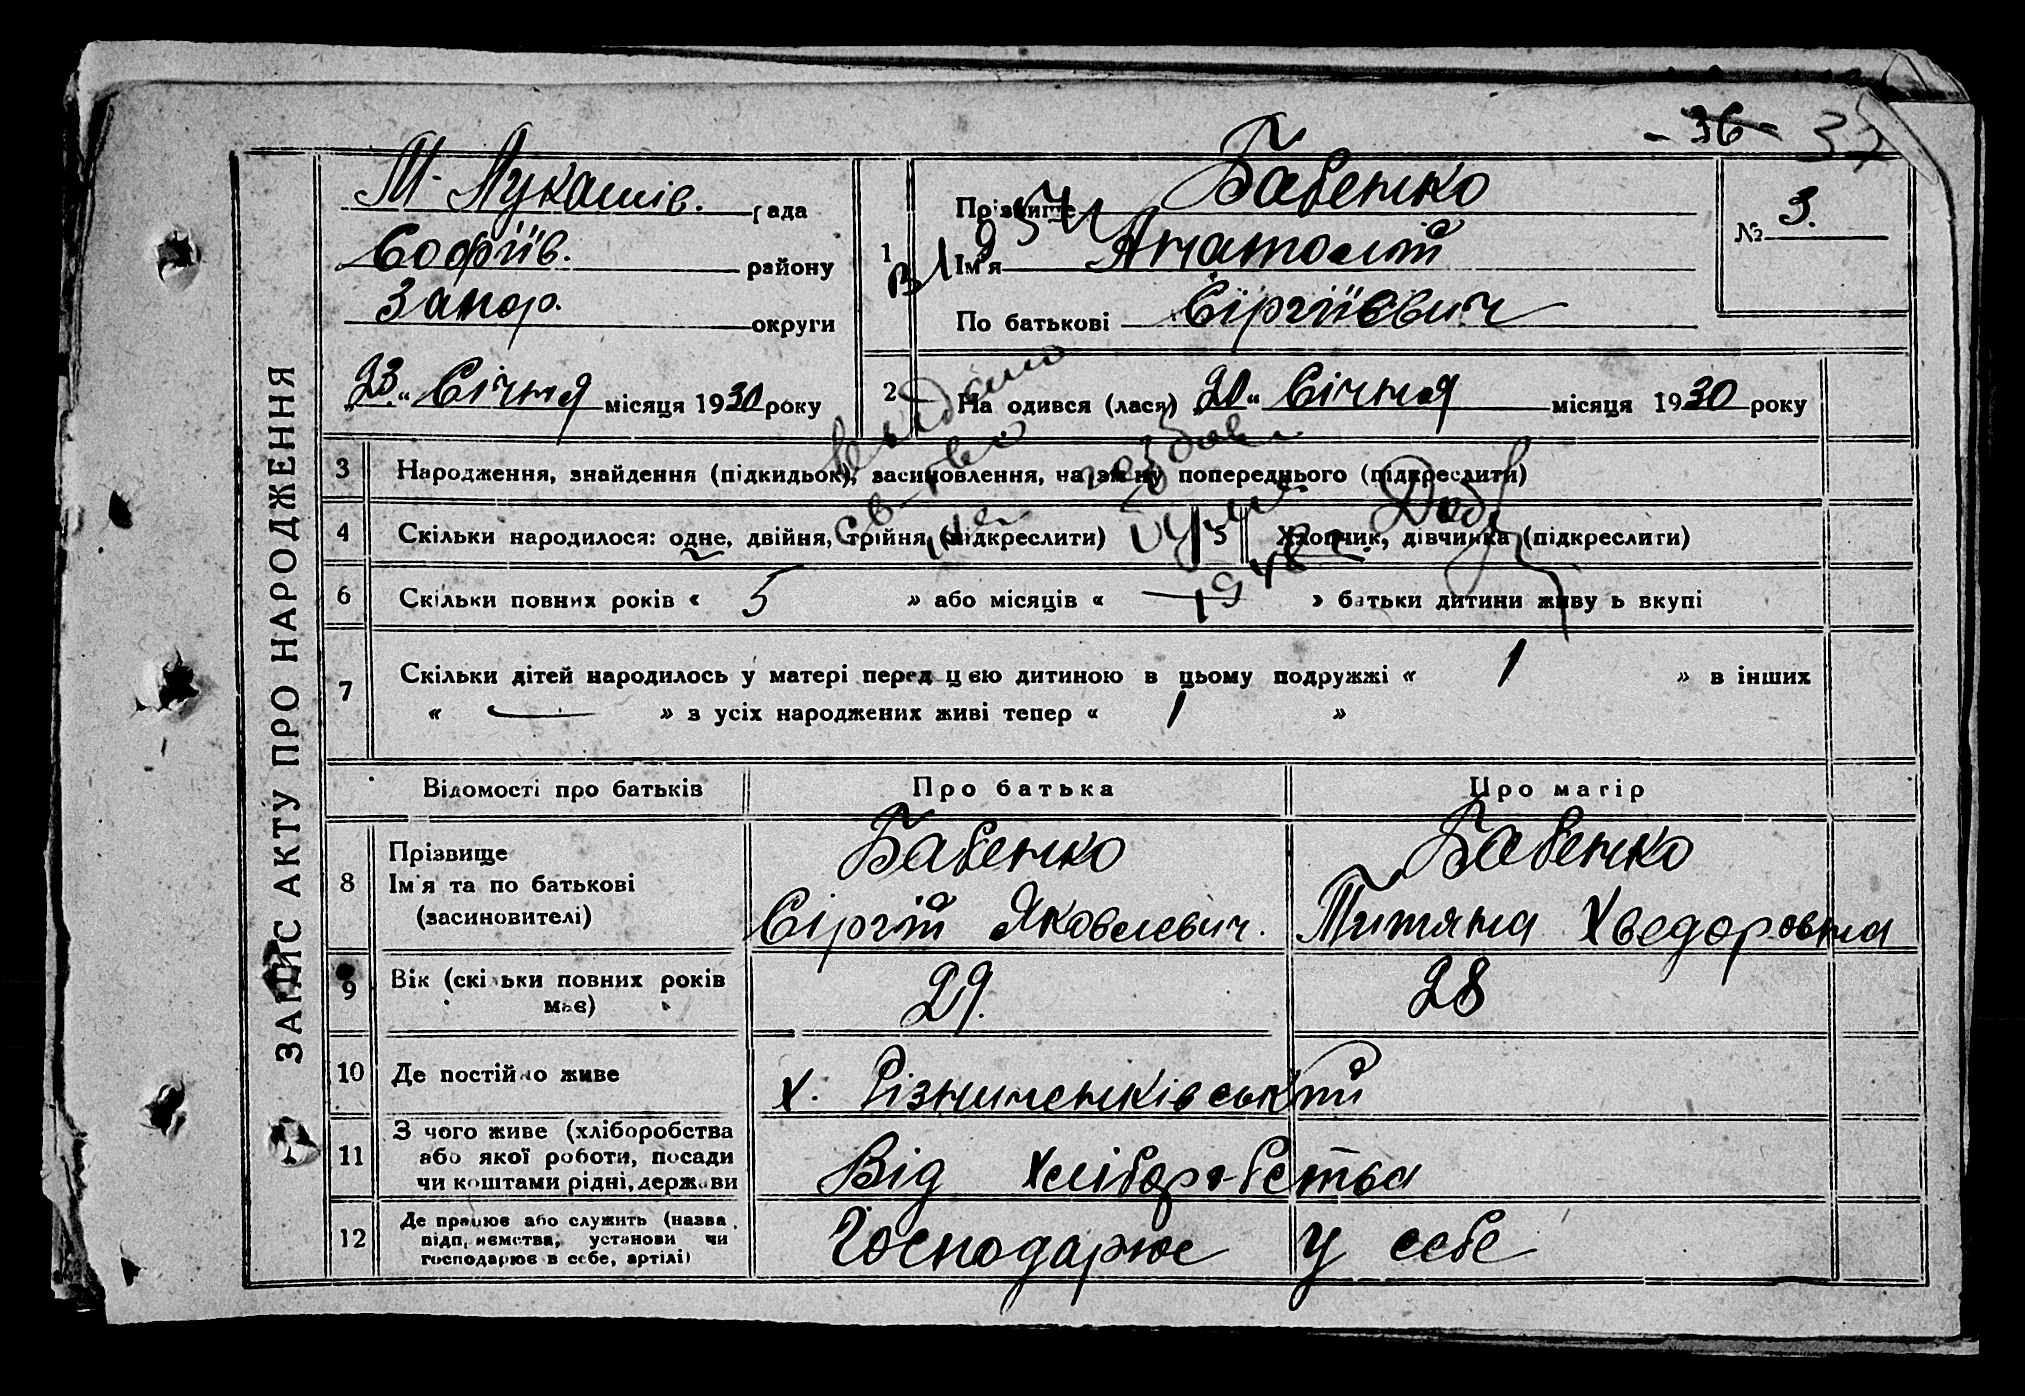 - 36 - 37
ЗАПИС АКТУ ПРО НАРОДЖЕННЯ
М-Лукашів. рада
Софіїв. району
Запор. округи
„23“ Січня місяця 1930 року
1
Прізвище Бабенко
Ім'я Анатолій
По батькові Сіргіївич
№ 3.
2 Народився (лася) „20“ Січня місяця 1930 року
3 Народження, знайдення (підкидьок), засиновлення, на зміну попереднього (підкреслити)
4 Скільки народилося: одне, двійня, трійня (підкреслити) 5 Хлопчик, дівчинка (підкреслити)
6 Скільки повних років « 5 » або місяців « — » батьки дитини живуть вкупі
7 Скільки дітей народилось у матері перед цією дитиною в цьому подружжі « 1 » в інших
« — » з усіх народжених живі тепер « 1 »
Відомості про батьків Про батька Про матір
8 Прізвище Бабенко Бабенко
Ім'я та по батькові
(засиновителі) Сіргій Яковлевич. Титяна Хведоровна
9 Вік (скільки повних років має) 29. 28
10 Де постійно живе х. Різниченківський
11 З чого живе (хліборобства
або якої роботи, посади
чи коштами рідні, держави Від хліборобства
12 Де працює або служить (назва
підприємства, установи чи
господарює в себе, артілі) Господарює у себе